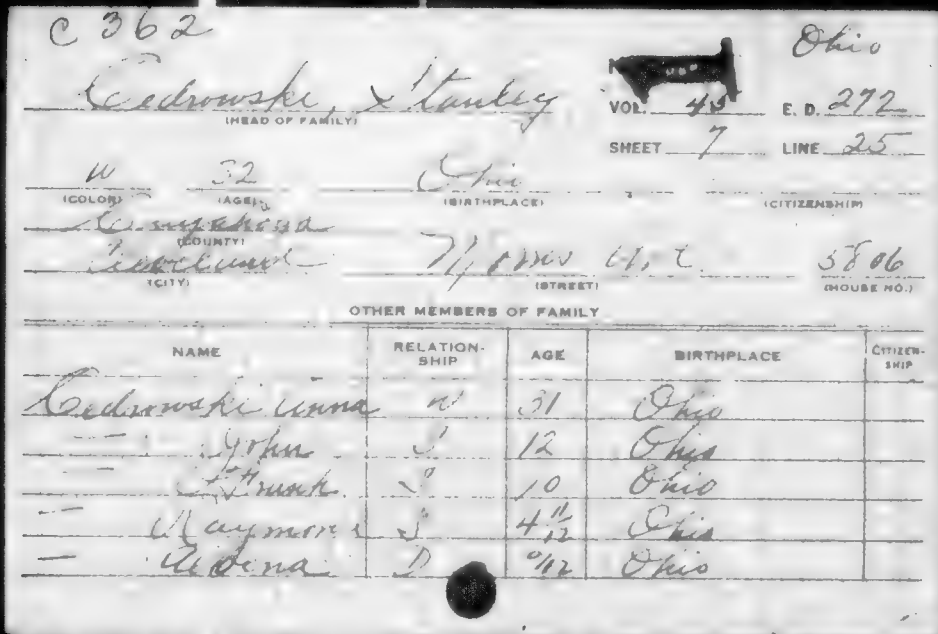 C 362
Ohio
Cedrowski, Stanley
(HEAD OF FAMILY)
VOL. 45 E. D. 272
SHEET 7 LINE 25
W 32 Ohio
(COLOR) (AGE) (BIRTHPLACE) (CITIZENSHIP)
Cuyahoga
(COUNTY)
Cleveland 5806
(CITY) (STREET) (HOUSE NO.)
OTHER MEMBERS OF FAMILY
NAME RELATION-SHIP AGE BIRTHPLACE CITIZEN-SHIP
Cedrowski Anna W 31 Ohio
— John S 12 Ohio
— Frank S 10 Ohio
— Raymond S 4 11/12 Ohio
— D 0/12 Ohio